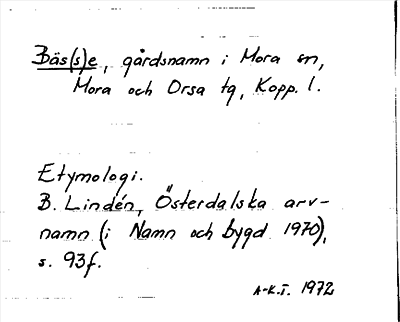 Bäs(s)e, gårdsnamn i Mora sn,
Mora och Orsa tg, Kopp. l.
Etymologi.
B. Lindén, Österdalska arv-
namn (i Namn och bygd 1970),
s. 93f.
A-K.T. 1972